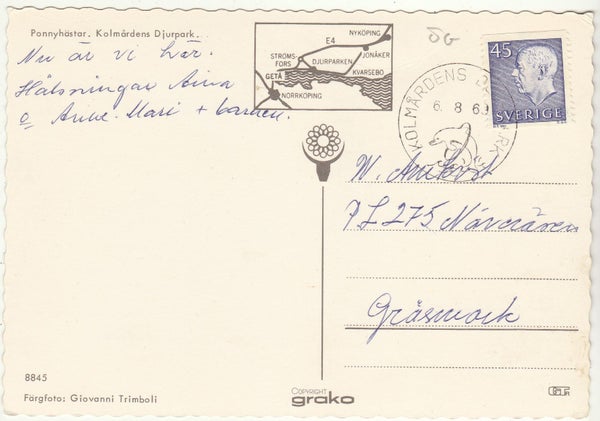 Ponnyhästar. Kolmårdens Djurpark.
Nu är vi här.
Hälsningar Aina
o Anne-Mari + barnen.
NYKÖPING
E4
STRÖMS-
FORS
JONÅKER
DJURPARKEN
GETÅ
KVARSEBO
NORRKÖPING
ÖG
45
SVERIGE
KOLMÅRDENS DJURPARK
6. 8 69
W. Almkvist
PL 275
Gräsmark
8845
Färgfoto: Giovanni Trimboli
COPYRIGHT
grako